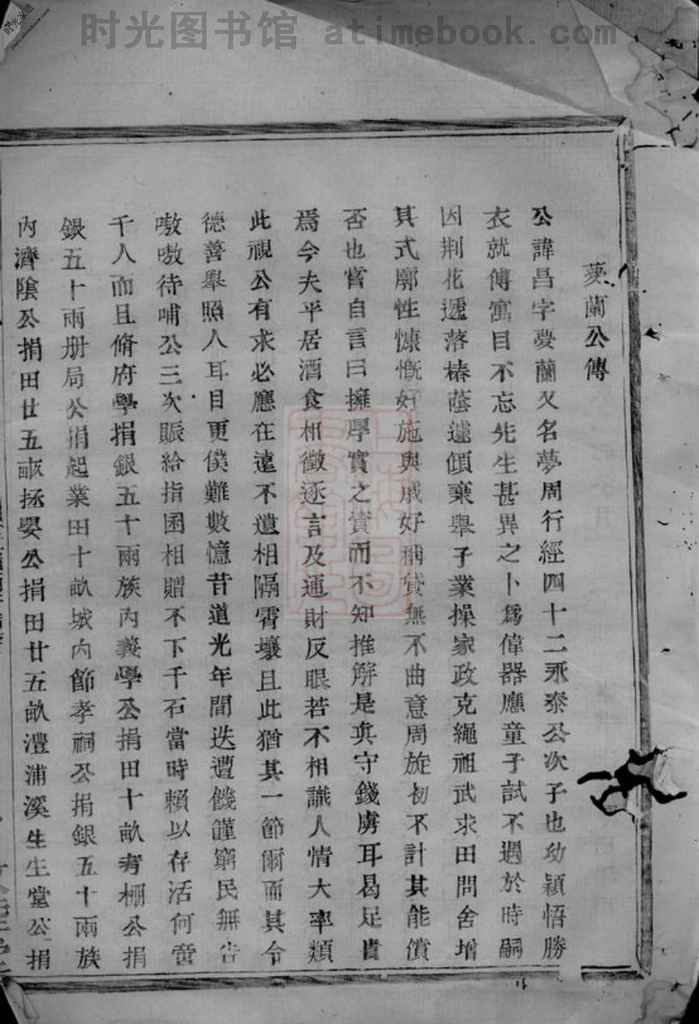 时光图书馆 atimebook.com
夢蘭公傳
公諱昌字夢蘭又名夢周行經四十二永泰公次子也幼穎悟勝
衣就傅寓目不忘先生甚異之卜為偉器應童子試不遇於時嗣
因荆花遞落椿蔭遽傾棄舉子業操家政克繩祖武求田問舍增
其式廓性慷慨好施與戚好稱貸無不曲意周旋初不計其能償
否也嘗自言曰擁厚實之資而不知推解是真守錢虜耳曷足貴
焉今夫平居酒食相徵逐言及通財反眼若不相識人情大率類
此視公有求必應在遠不遺相隔霄壤且此猶其一節爾而其令
德善舉照人耳目更僕難數憶昔道光年間迭遭饑饉窮民無告
嗷嗷待哺公三次賑給指囷相贈不下千石當時賴以存活何啻
千人而且脩府學捐銀五十兩族內義學公捐田十畝考棚公捐
銀五十兩册局公捐起業田十畝城內節孝祠公捐銀五十兩族
內濟陰公捐田廿五畝拯嬰公捐田廿五畝澧浦溪生生堂公捐